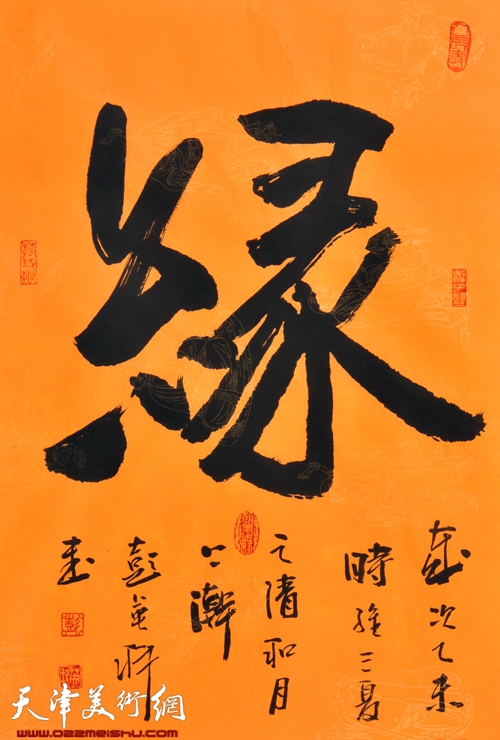 緣
歲次乙未
時維三夏
之清和月
上澣
彭英科
書
天津美術網
www.022meishu.com